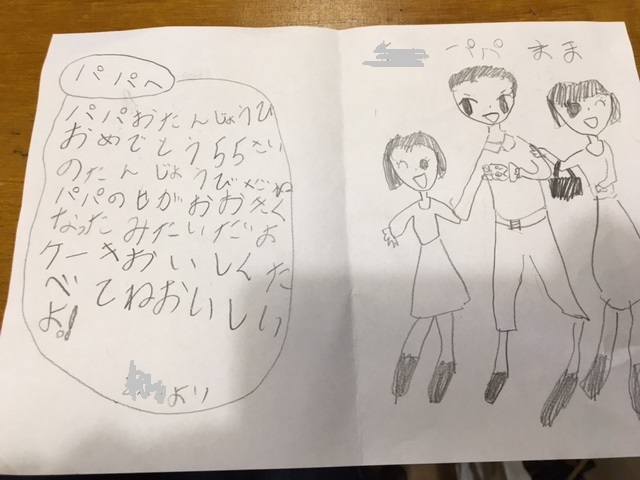 パパへ
パパおたんじょうひ
おめでとう55さい
のたんじょうびだね
パパのせがおおきく
なったみたいだよ
ケーキおいしくた
べてねおいしい
よ。!
より
パパ まま